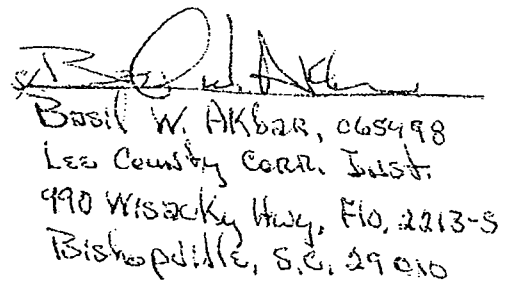 Basil W. Akbar
Basil W. Akbar, 065498
Lee County Corr. Inst.
990 Wisacky Hwy, Flo, 2213-S
Bishopville, S.C. 29010